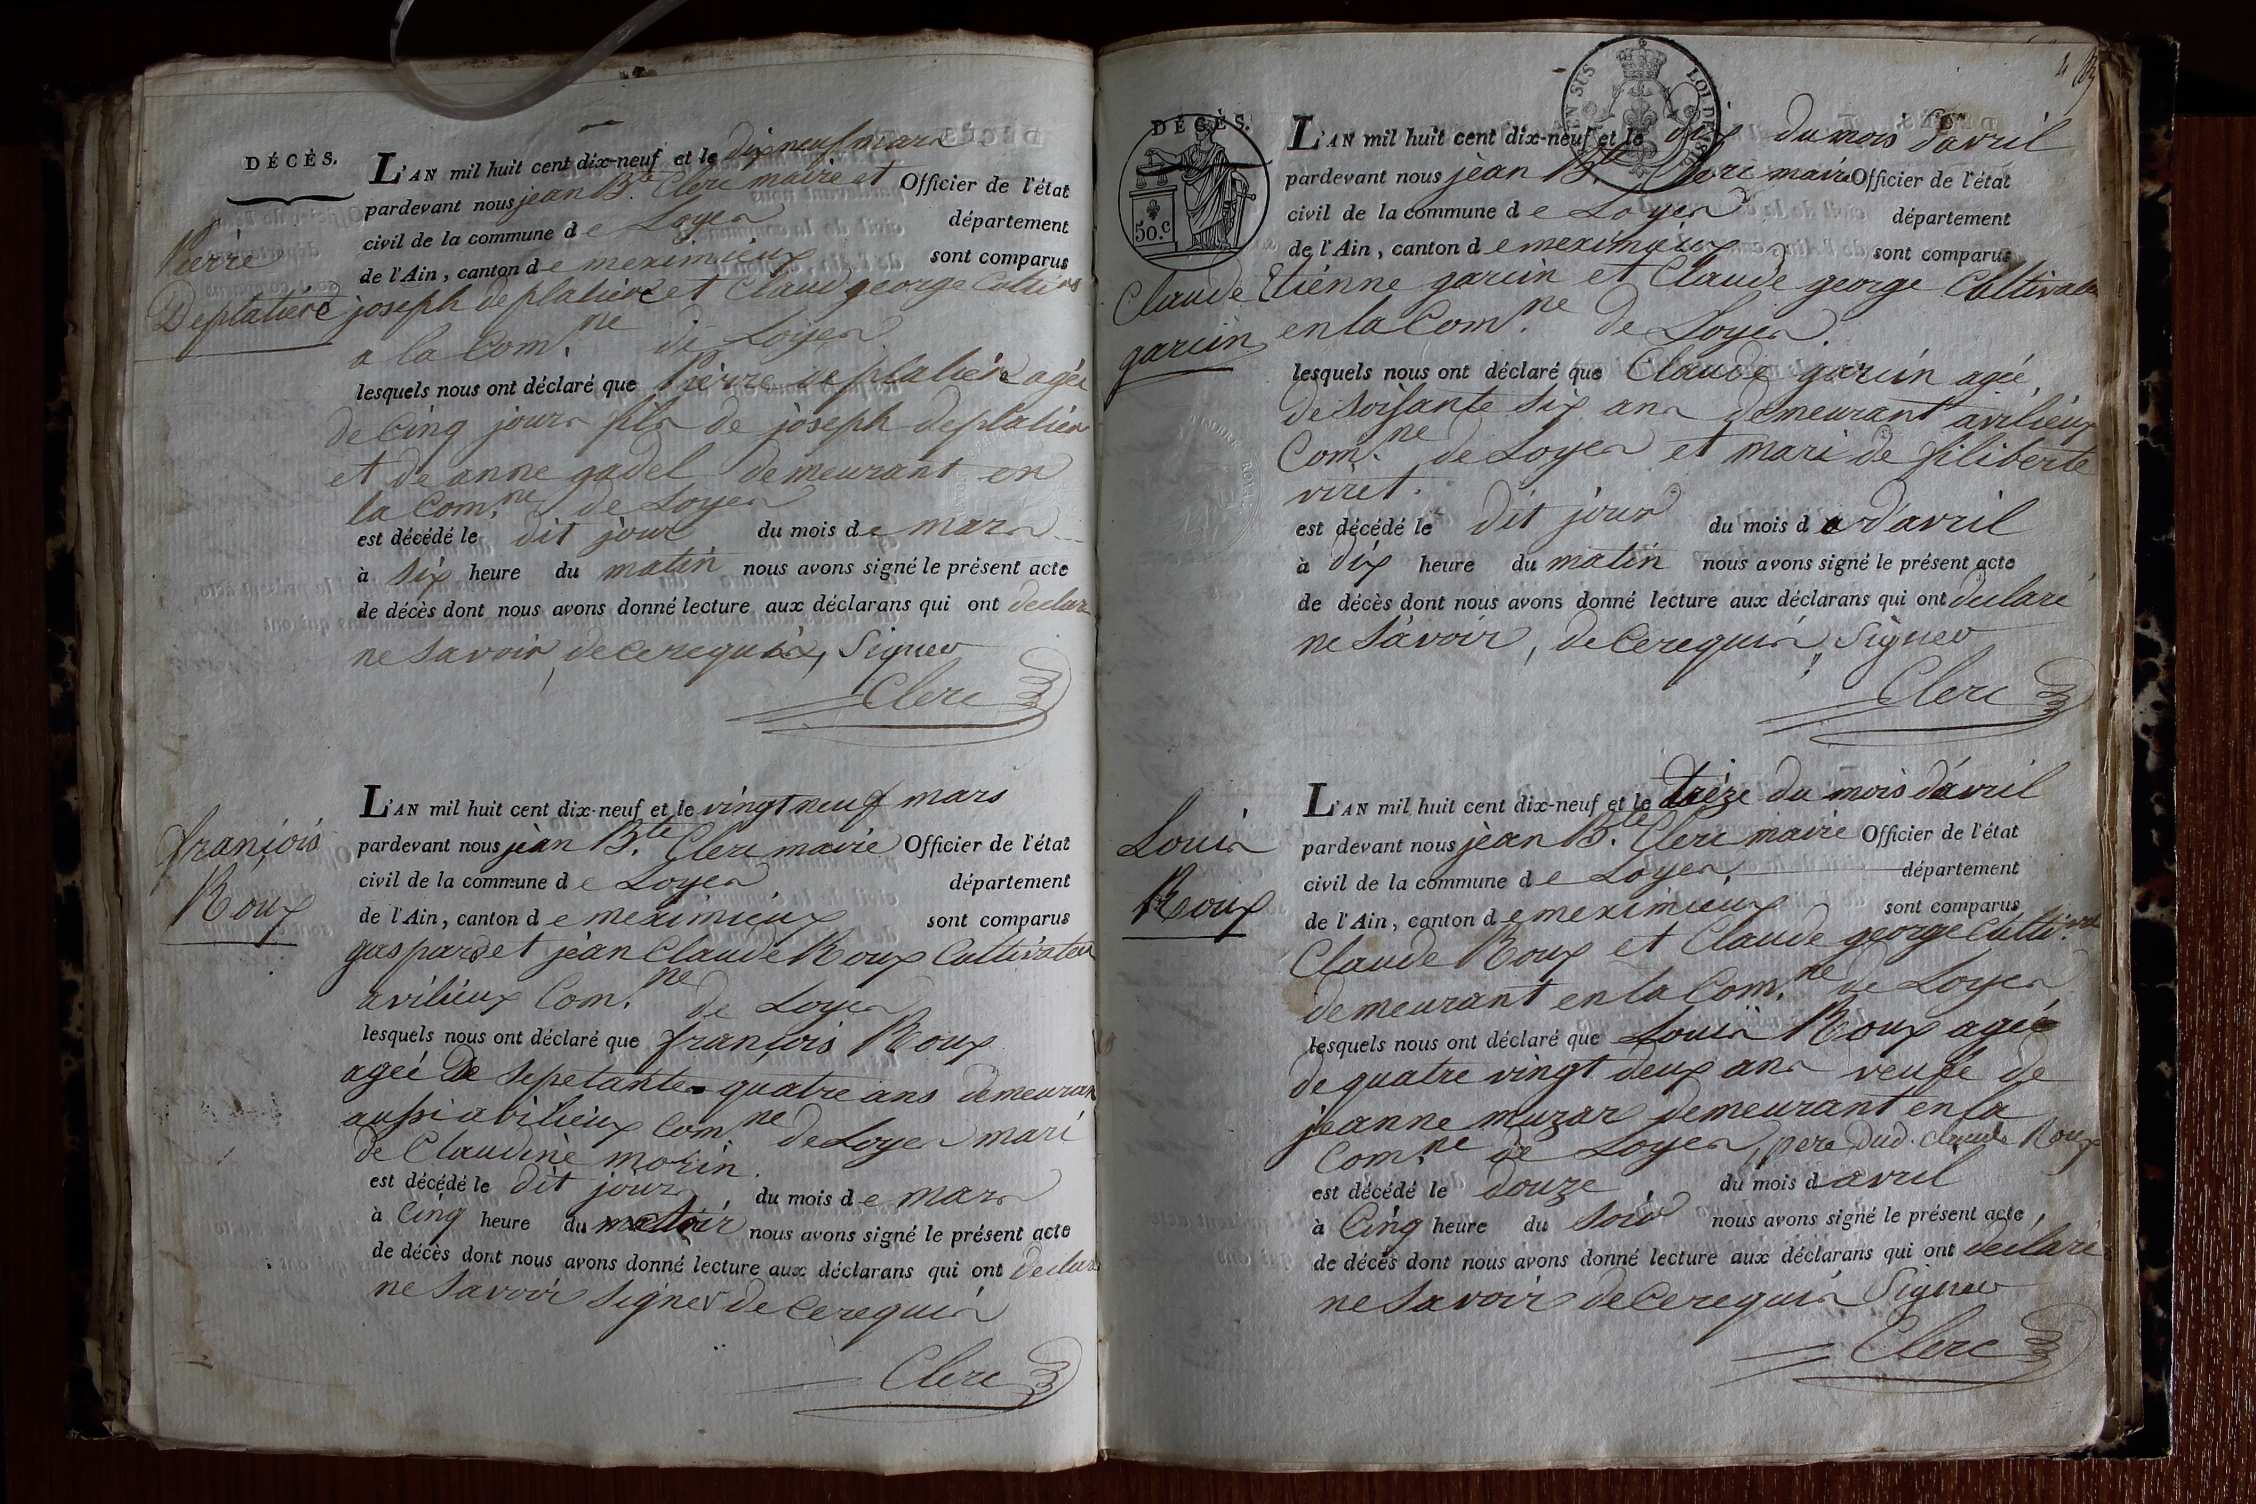 DÉCÈS.
Pierre
Deplatiere
L'AN mil huit cent dix-neuf et le dix neuf mars
pardevant nous jean B.te Clerc maire et Officier de l'état
civil de la commune de Loyes département
de l'Ain, canton de meximieux sont comparus
joseph deplatiere et Claud george Cultivrs
a la Com.ne de Loyes
lesquels nous ont déclaré que Pierre deplatiere agée
de Cinq jours fils de joseph deplatiere
et de anne gadel demeurant en
la Com.ne de Loyes
est décédé le dit jour du mois de mars
à six heure du matin nous avons signé le présent acte
de décès dont nous avons donné lecture aux déclarans qui ont declaré
ne savoir, de ce requis, Signer
Clerc
francois
Roux
L'AN mil huit cent dix-neuf et le vingt neuf mars
pardevant nous jean B.te Clerc maire Officier de l'état
civil de la commune de Loyes département
de l'Ain, canton de meximieux sont comparus
gaspard et jean Claude Roux Cultivateur
a vilieux Com.ne de Loyes
lesquels nous ont déclaré que françois Roux
ageé de sepetante quatre ans demeurant
aussi a vilieux Com.ne de Loyes mari
de Claudine morin.
est décédé le dit jour, du mois de mars
à Cinq heure du nous avons signé le présent acte
de décès dont nous avons donné lecture aux déclarans qui ont declaré
ne savoir signer de ce requis
Clerc
DÉCÈS.
50.c
LOI DE
Claude
garcin
L'AN mil huit cent dix-neuf et le dix du mois d'avril
pardevant nous jean B.te Clerc maire Officier de l'état
civil de la commune de Loyes département
de l'Ain, canton de meximieux sont comparus
Etienne garcin et Claude george Cultivateur
en la Com.ne de Loyes.
lesquels nous ont déclaré que Claude garcin ageé,
de soisante six ans demeurant a vilieux
Com.ne de Loyes et mari de filiberte
viret.
est décédé le dit jour du mois d d'avril
à dix heure du matin nous avons signé le présent acte
de décès dont nous avons donné lecture aux déclarans qui ont declaré
ne savoir, de ce requis, Signer
Clerc
Louis
Roux
L'AN mil huit cent dix-neuf et le treize du mois d'avril
pardevant nous jean B.te Clerc maire Officier de l'état
civil de la commune de Loyes département
de l'Ain, canton de meximieux sont comparus
Claude Roux et Claude george Cultivr
demeurant en la Com.ne de Loyes
lesquels nous ont déclaré que Louis Roux ageé
de quatre vingt deux ans veufe de
jeanne muzar demeurant en la
Com.ne de Loyes, pere dud. Claude Roux
est décédé le douze du mois d avril
à Cinq heure du soir nous avons signé le présent acte,
de décès dont nous avons donné lecture aux déclarans qui ont declaré
ne savoir de ce requis Signer
Clerc